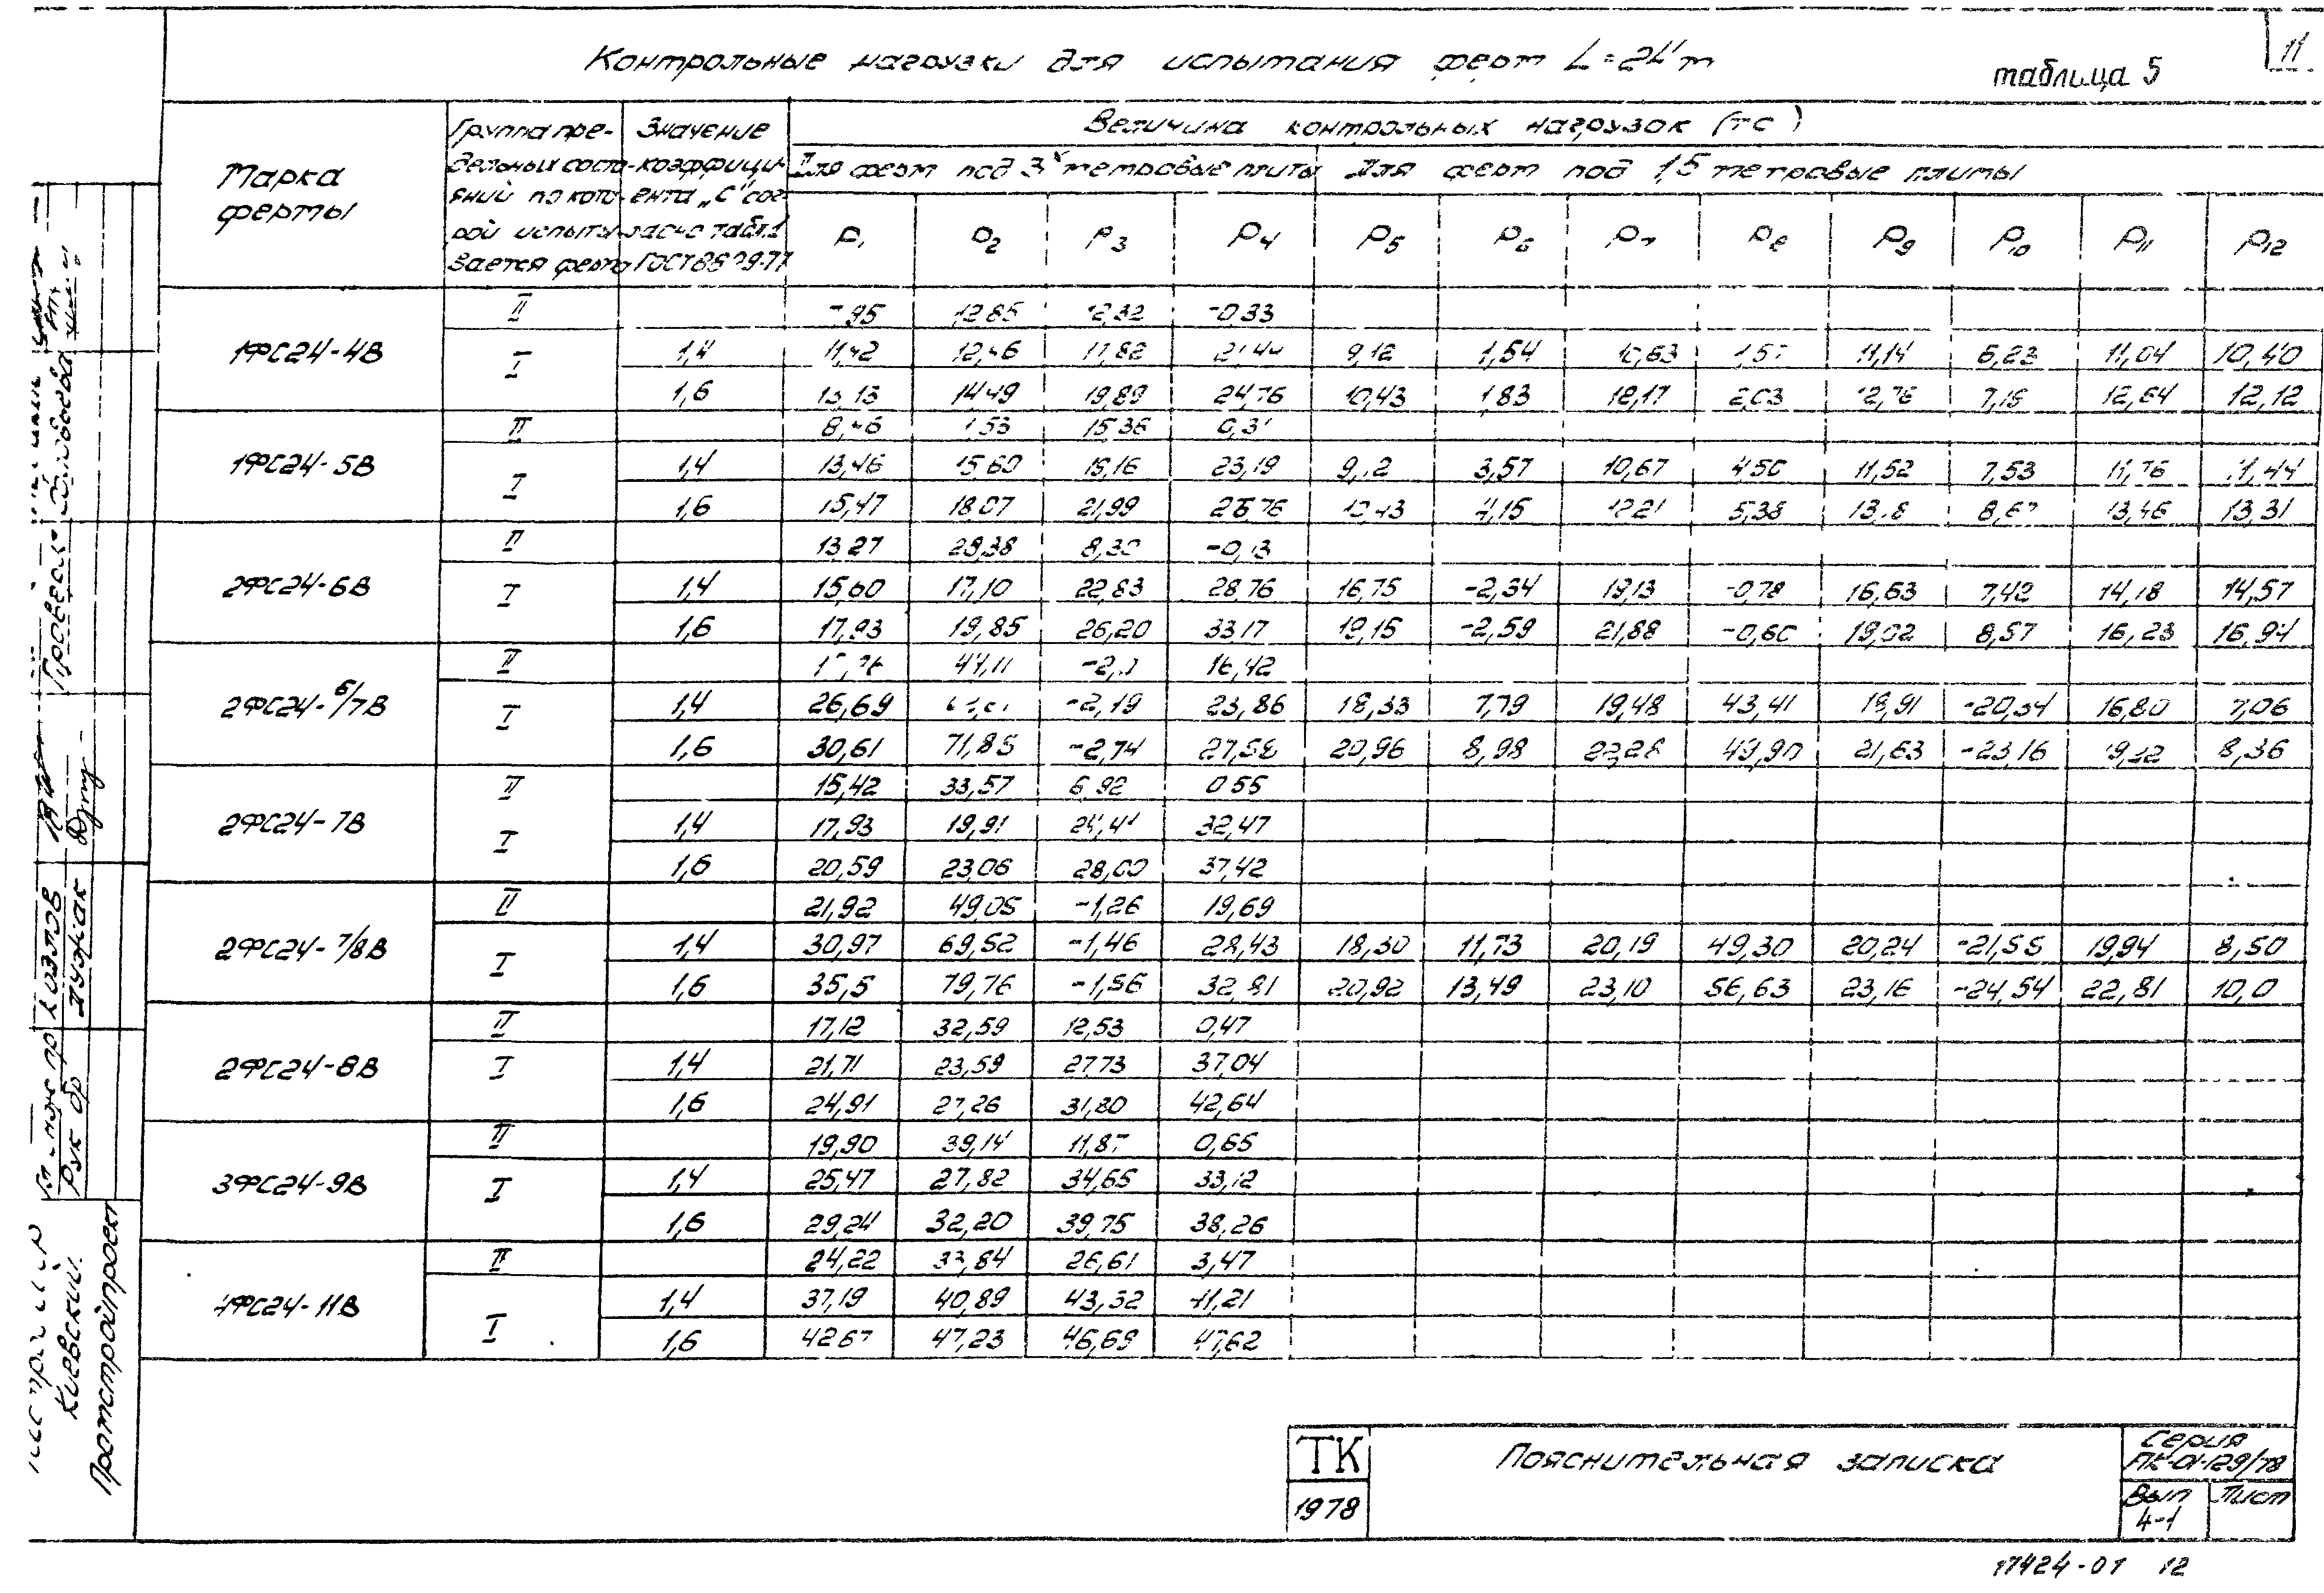 11
Контрольные нагрузки для испытания ферм L=24 м
таблица 5
Марка фермы
Группа предельных состояний по которой испытывается ферма
Значение коэффициента „С" согласно табл.1 ГОСТ 8829-77
Величина контрольных нагрузок (тс)
Для ферм под 3х метровые плиты
Для ферм под 1,5 метровые плиты
P1 P2 P3 P4 P5 P6 P7 P8 P9 P10 P11 P12
1ФС24-4В
II 12,85 -0,33
I 1,4 11,42 12,46 9,12 1,54 10,63 11,14 11,04 10,40
1,6 13,13 14,49 19,89 24,76 10,43 1,83 12,17 2,03 12,64 12,12
1ФС24-5В
II 15,36
I 1,4 13,46 15,60 23,19 3,57 10,67 4,50 11,52 7,53 11,44
1,6 15,47 18,07 21,99 26,76 4,15 12,21 5,38 13,46 13,31
2ФС24-6В
II 13,27 -0,13
I 1,4 15,60 17,10 22,83 28,76 16,75 -2,34 19,13 -0,78 16,63 7,42 14,18 14,57
1,6 17,93 19,85 26,20 33,17 19,15 -2,59 21,88 -0,60 19,02 8,57 16,23 16,94
2ФС24-6/7В
II 16,42
I 1,4 26,69 -2,19 23,86 18,33 7,79 19,48 43,41 18,91 -20,34 16,80 7,06
1,6 30,61 71,85 -2,74 27,58 20,96 8,98 22,28 49,90 21,63 -23,16 8,36
2ФС24-7В
II 15,42 33,57 6,92 0,55
I 1,4 17,93 19,91 32,47
1,6 20,59 23,06 28,00 37,42
2ФС24-7/8В
II 21,92 49,05 -1,26 19,69
I 1,4 30,97 69,52 -1,46 28,43 18,30 11,73 20,19 49,30 20,24 -21,55 19,94 8,50
1,6 35,5 79,76 -1,56 32,81 20,92 13,49 23,10 56,63 23,16 -24,54 22,81 10,0
2ФС24-8В
II 17,12 32,59 12,53 0,47
I 1,4 21,71 23,59 27,73 37,04
1,6 24,91 27,26 31,80 42,64
3ФС24-9В
II 19,90 39,14 0,65
I 1,4 25,47 27,82 34,65 33,12
1,6 29,24 32,20 39,75 38,26
4ФС24-11В
II 24,22 33,84 26,61 3,47
I 1,4 37,19 40,89 43,32 41,21
1,6 42,67 47,23 46,69 47,62
Киевский
Промстройпроект
Рук бр
Козлов
Лужак
Проверил
Соловьева
ТК
1978
Пояснительная записка
Серия
ПК-01-129/78
Вып
4-1
Лист
17424-01 12